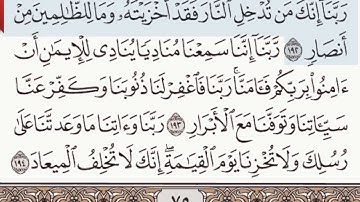 رَبَّنَآ إِنَّكَ مَن تُدْخِلِ ٱلنَّارَ فَقَدْ أَخْزَيْتَهُۥ وَمَا لِلظَّـٰلِمِينَ مِنْ
أَنصَارٍ ١٩٢ رَّبَّنَآ إِنَّنَا سَمِعْنَا مُنَادِيًا يُنَادِى لِلْإِيمَـٰنِ أَنْ
ءَامِنُوا۟ بِرَبِّكُمْ فَـَٔامَنَّا ۚ رَبَّنَا فَٱغْفِرْ لَنَا ذُنُوبَنَا وَكَفِّرْ عَنَّا
سَيِّـَٔاتِنَا وَتَوَفَّنَا مَعَ ٱلْأَبْرَارِ ١٩٣ رَبَّنَا وَءَاتِنَا مَا وَعَدتَّنَا عَلَىٰ
رُسُلِكَ وَلَا تُخْزِنَا يَوْمَ ٱلْقِيَـٰمَةِ ۗ إِنَّكَ لَا تُخْلِفُ ٱلْمِيعَادَ ١٩٤
٧٥